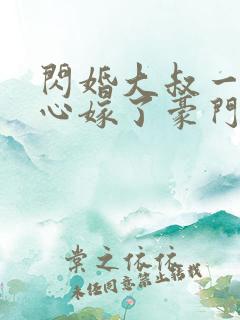 閃婚大叔一
心嫁了豪門
棠之依依
未經同意禁止轉載